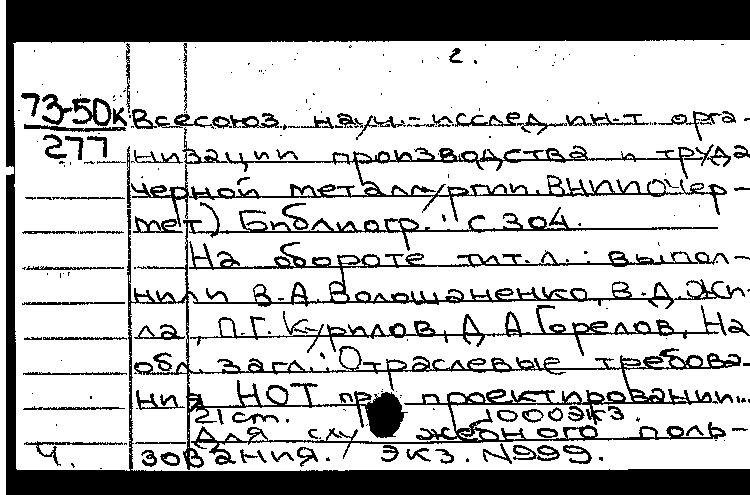 2.
73-50к
277
Всесоюз. науч.-исслед. ин-т орга-
низации производства и труда
черной металлургии. ВНИИОчер-
мет). Библиогр.: с 304.
На обороте тит. л.: выпол-
нили В.А Волошаненко, В.Д. Жи-
ла, П.Г. Курилов, Д А Горелов, На
обл. загл.: Отраслевые требова-
ния НОТ при проектировании...
21 ст. 1000 экз.
Для служебного поль-
Ч. зования. Экз. N999.